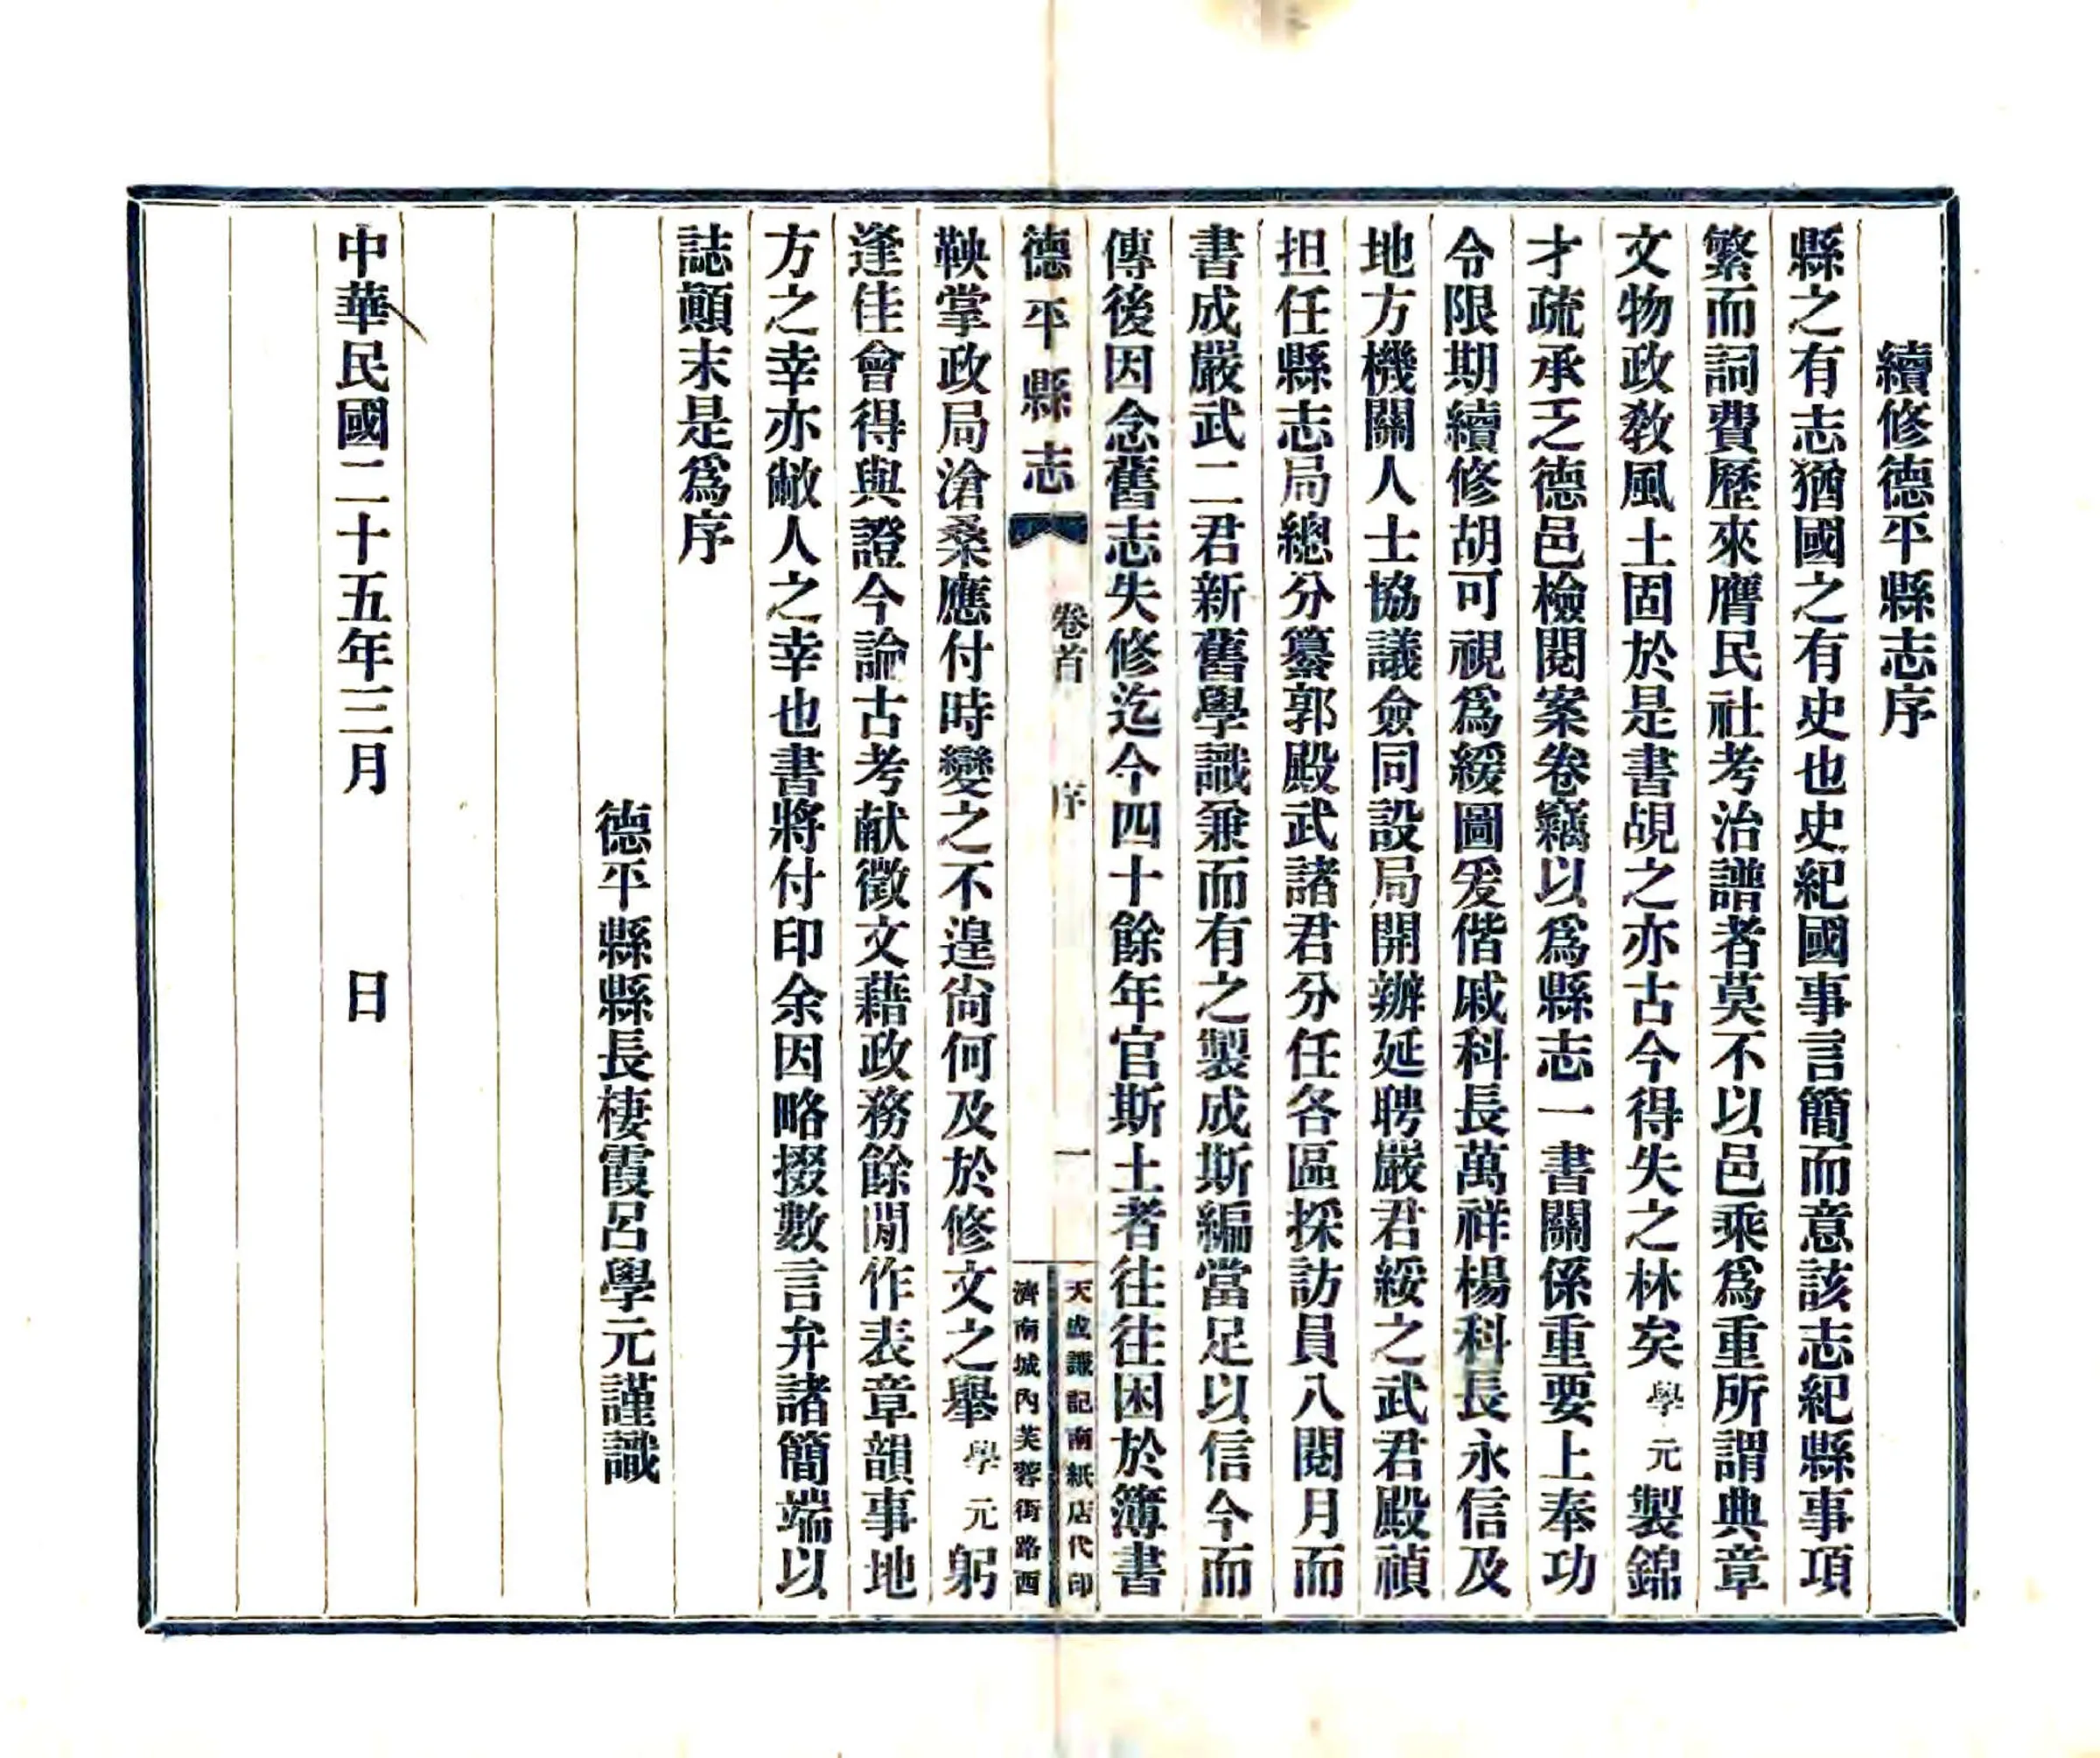 續修德平縣志序
縣之有志猶國之有史也史紀國事言簡而意該志紀縣事項
繁而詞費歷來膺民社考治譜者莫不以邑乘爲重所謂典章
文物政教風土固於是書覘之亦古今得失之林矣學元製錦
才疏承乏德邑檢閱案卷竊以爲縣志一書關係重要上奉功
令限期續修胡可視爲緩圖爰偕戚科長萬祥楊科長永信及
地方機關人士協議僉同設局開辦延聘嚴君綏之武君殿禎
担任縣志局總分纂郭殿武諸君分任各區採訪員八閱月而
書成嚴武二君新舊學識兼而有之製成斯編當足以信今而
傳後因念舊志失修迄今四十餘年官斯土者往往困於簿書
德平縣志
卷首
序
一
天成謙記南紙店代印
濟南城內芙蓉街路西
鞅掌政局滄桑應付時變之不遑尙何及於修文之舉學元躬
逢佳會得與證今論古考献徵文藉政務餘閒作表章韻事地
方之幸亦敝人之幸也書將付印余因略掇數言弁諸簡端以
誌顚末是爲序
德平縣縣長棲霞呂學元謹識
中華民國二十五年三月 日